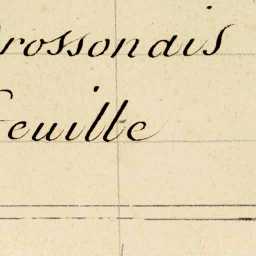 rossonais
feuille